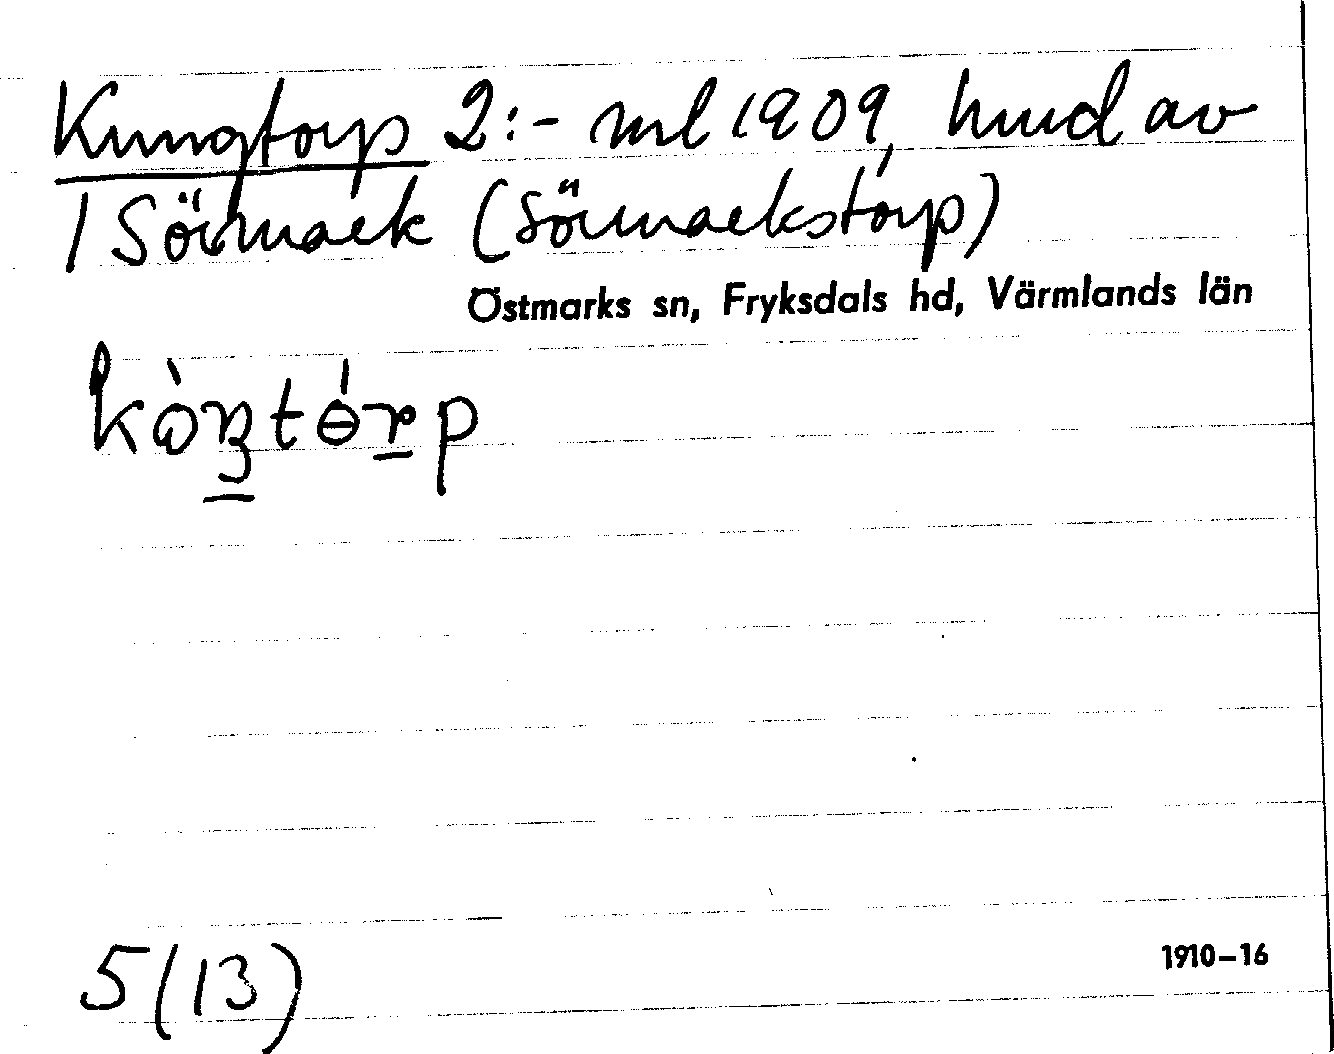 Kungtorp 2:- ml 1909, hmd av
1 Sörmark (Sörmarkstorp)
Östmarks sn, Fryksdals hd, Värmlands län
5(13)
1910–16